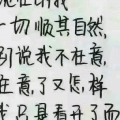 一切顺其自然,
别说我不在意,
在意了又怎样
我只是看开了而